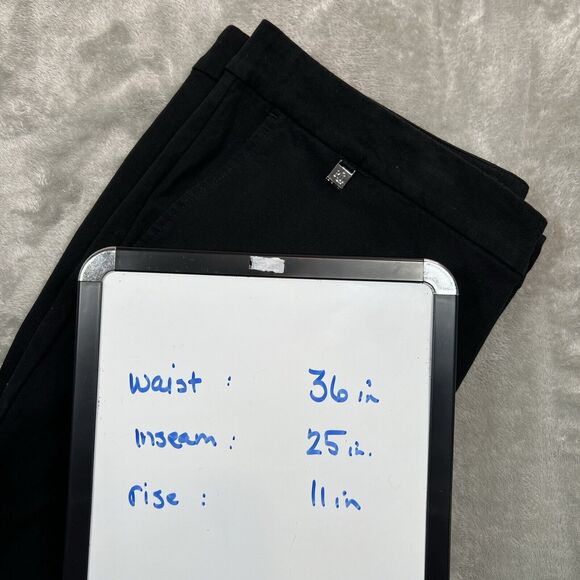 waist : 36 in
inseam : 25 in.
rise : 11 in